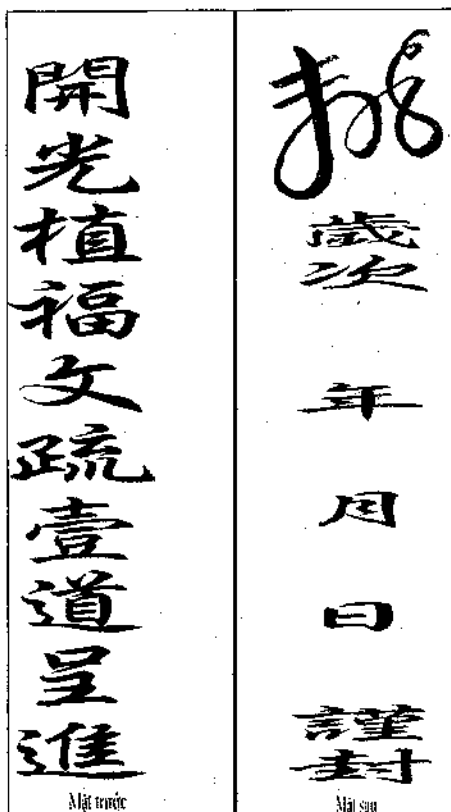 開光植福文疏壹道呈進
Mặt trước
歲次 年 月 日 謹封
Mặt sau